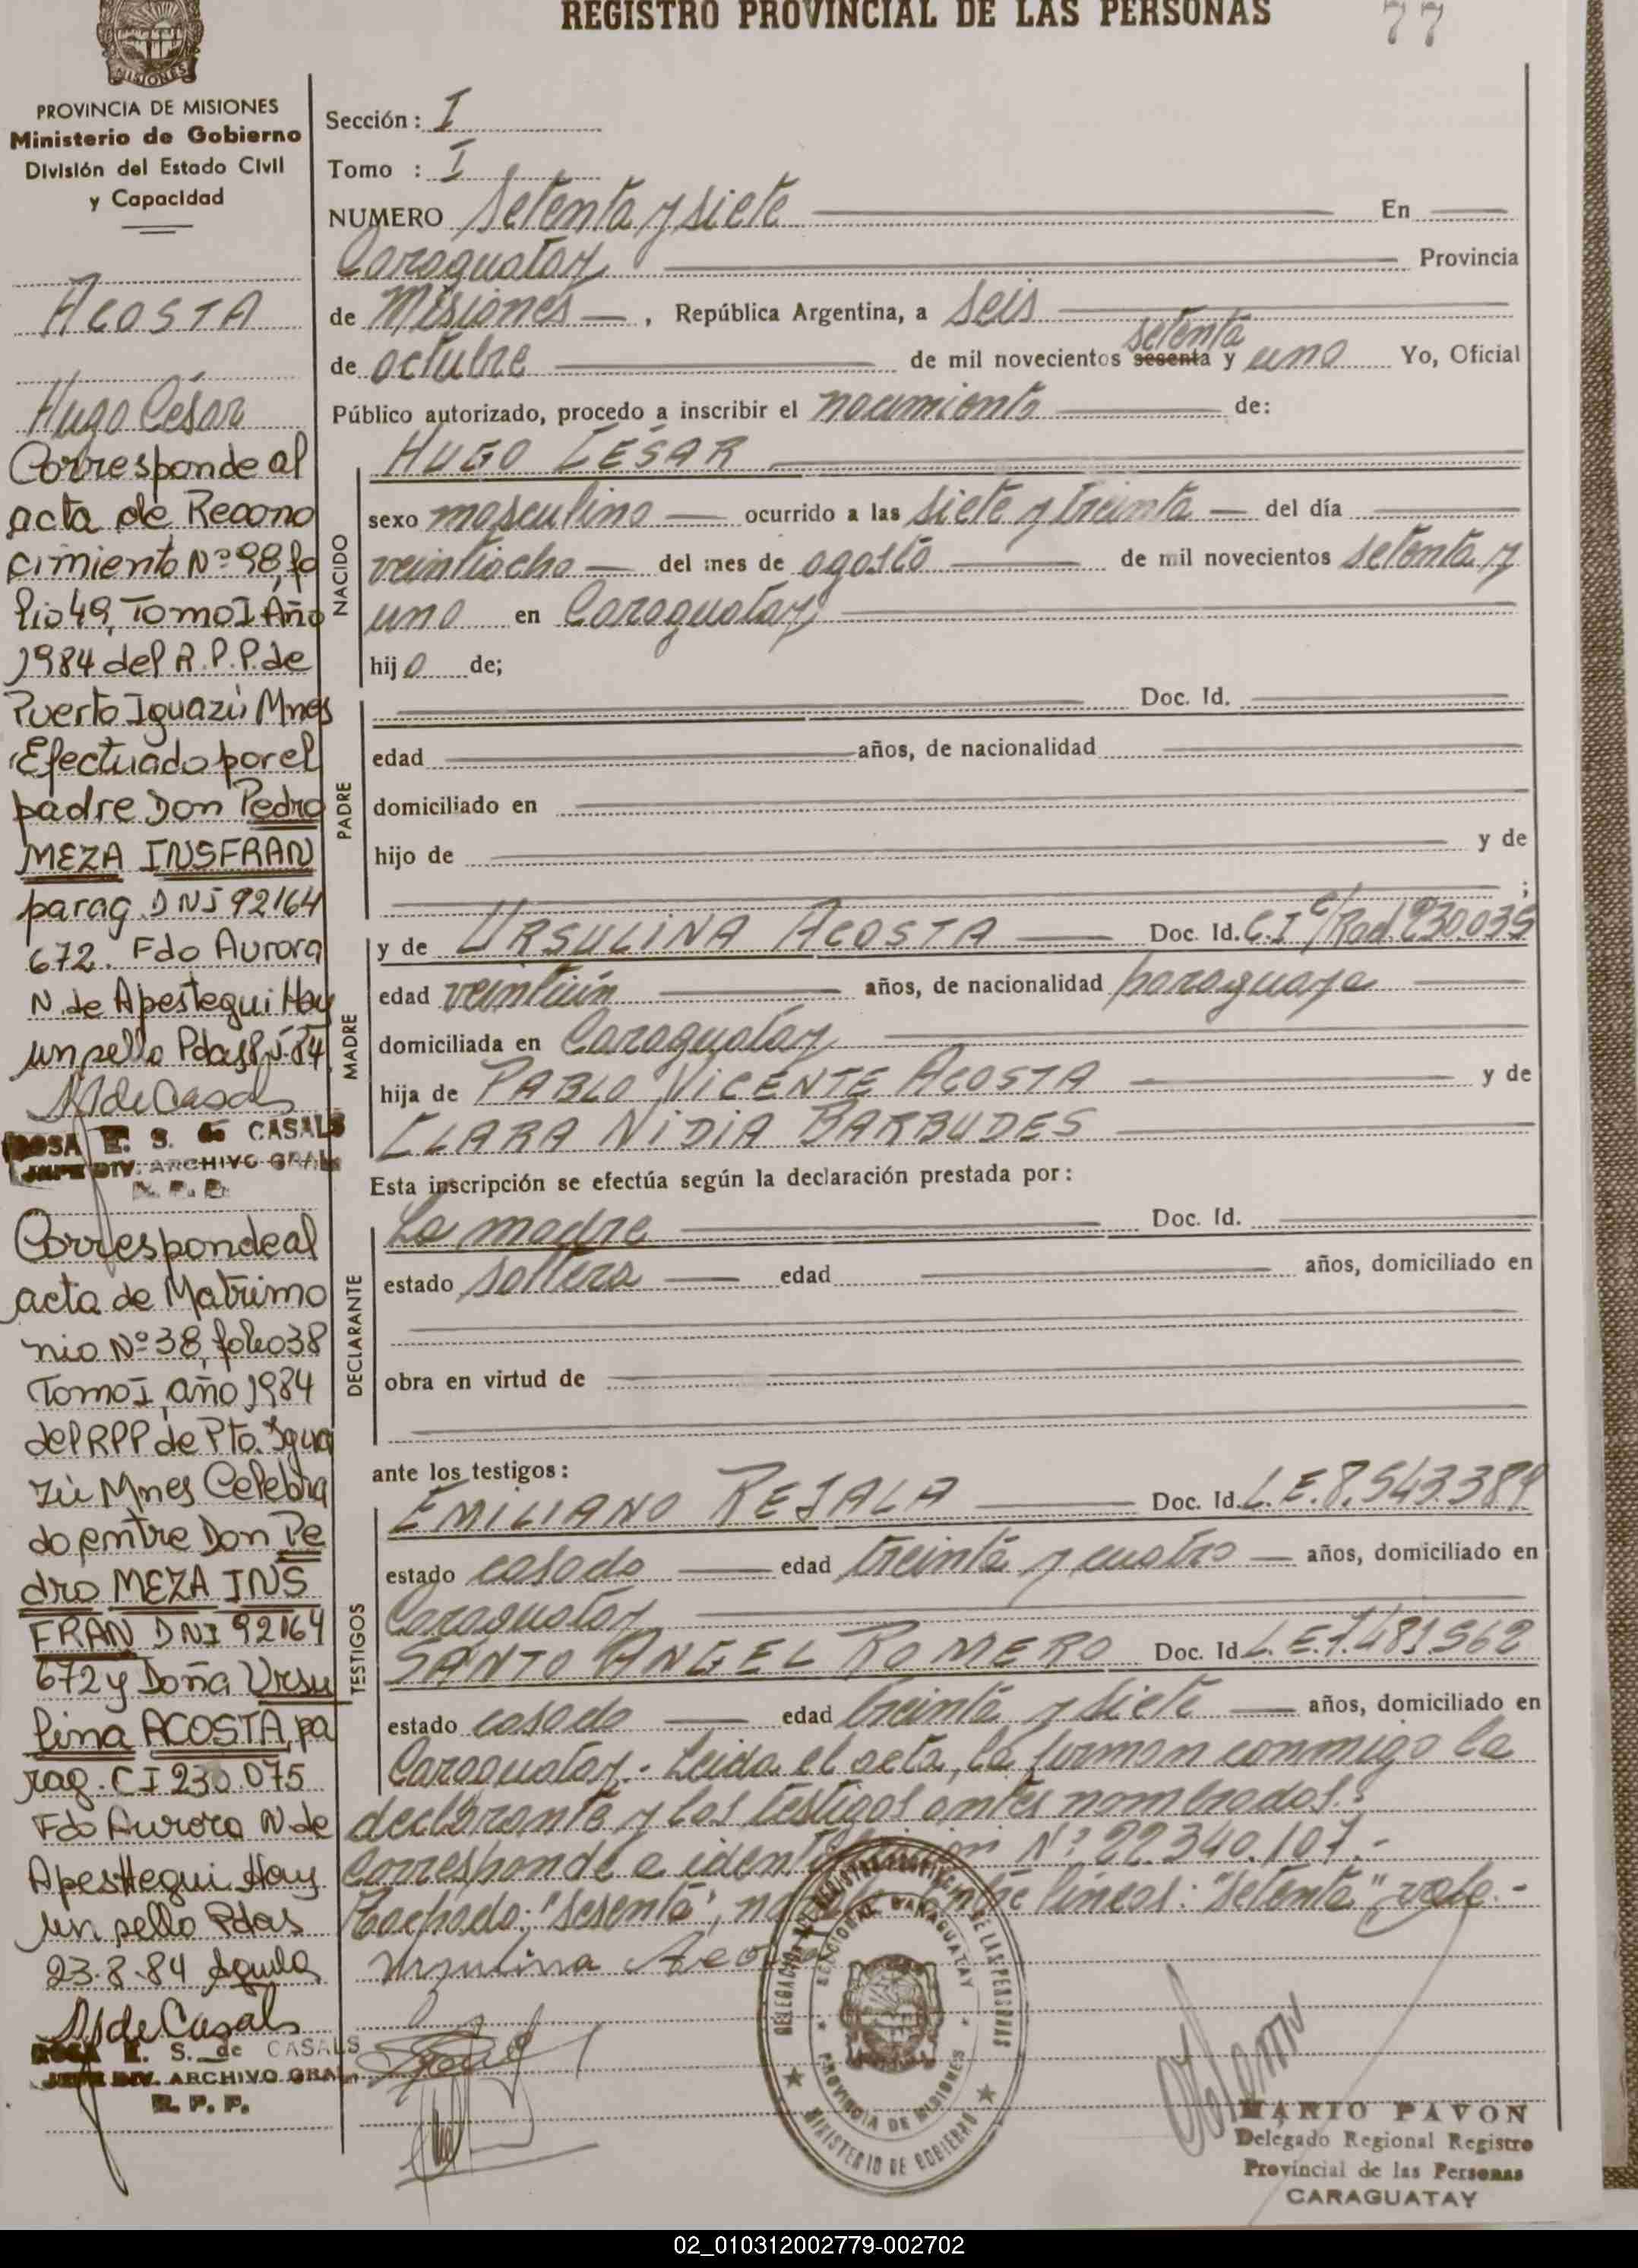 REGISTRO PROVINCIAL DE LAS PERSONAS
77
MISIONES
PROVINCIA DE MISIONES
Ministerio de Gobierno
División del Estado Civil
y Capacidad
ACOSTA
Hugo César
Corresponde al
acta de Recono
cimiento Nº 98, fo
lio 49, Tomo I Año
1984 del R.P.P. de
Puerto Iguazú Mnes
Efectuado por el
padre Don Pedro
MEZA INSFRAN
parag. DNI 92164
672. Fdo Aurora
N. de Apestegui Hay
un sello Pdas
M de Casals
ROSA E. S. de CASALS
JEFE DIV. ARCHIVO GRAL.
R. P. P.
Corresponde al
acta de Matrimo
nio Nº 38, folio 038
Tomo I, año 1984
del RPP de Pto. Igua
zú Mnes Celebra
do entre Don Pe
dro MEZA INS
FRAN DNI 92164
672 y Doña Ursu
lina ACOSTA, pa
rag. CI 230.075
Fdo Aurora N de
Apesttegui Hay
un sello Pdas
23.8.84
M de Casals
ROSA E. S. de CASALS
JEFE DIV. ARCHIVO GRAL.
R. P. P.
Sección: I
Tomo : I
NUMERO Setenta y siete En
Caraguatay Provincia
de Misiones, República Argentina, a seis
setenta
de octubre de mil novecientos sesenta y uno Yo, Oficial
Público autorizado, procedo a inscribir el nacimiento de:
HUGO CÉSAR
NACIDO
sexo masculino ocurrido a las siete y treinta del día
veintiocho del mes de agosto de mil novecientos setenta y
uno en Caraguatay
hijo de;
PADRE
Doc. Id.
edad años, de nacionalidad
domiciliado en
hijo de y de
;
MADRE
y de URSULINA ACOSTA Doc. Id. C.I c/Rad. 230.035
edad veintiún años, de nacionalidad paraguaya
domiciliada en Caraguatay
hija de PABLO VICENTE ACOSTA y de
CLARA NIDIA BARBUDES
Esta inscripción se efectúa según la declaración prestada por:
DECLARANTE
La madre Doc. Id.
estado soltera edad años, domiciliado en
obra en virtud de
ante los testigos:
TESTIGOS
EMILIANO REJALA Doc. Id. L.E. 8.543.389
estado casado edad treinta y cuatro años, domiciliado en
Caraguatay
SANTO ANGEL ROMERO Doc. Id. L.E. 7.481962
estado casado edad treinta y siete años, domiciliado en
Caraguatay.- Leida el acta, la firman conmigo la
declarante y los testigos antes nombrados.-
Corresponde a identificación Nº: 22.340.107.-
Tachado: "sesenta", no vale entre lineas: "setenta" vale.-
Ursulina Acosta
DELEGACION REGISTRO PROVINCIAL DE LAS PERSONAS
SECCIONAL CARAGUATAY
PROVINCIA DE MISIONES
MINISTERIO DE GOBIERNO
MARIO PAVON
Delegado Regional Registro
Provincial de las Personas
CARAGUATAY
02_010312002779-002702